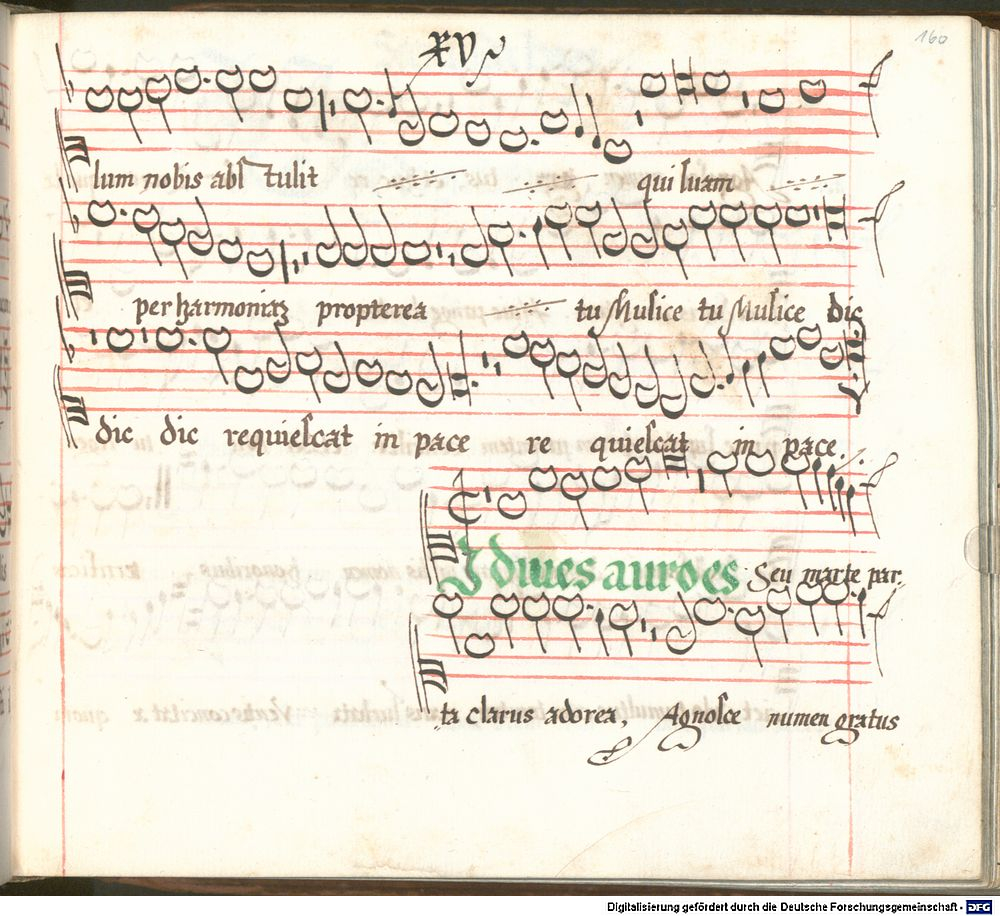 XV
160
lum nobis abs tulit qui suam
per harmoniaʒ propterea tu Musice tu Musice dic
dic dic requiescat in pace re quiescat in pace.
Si dives auro es Seu marte par:
ta clarus adorea, Agnosce numen gratus
Digitalisierung gefördert durch die Deutsche Forschungsgemeinschaft - DFG